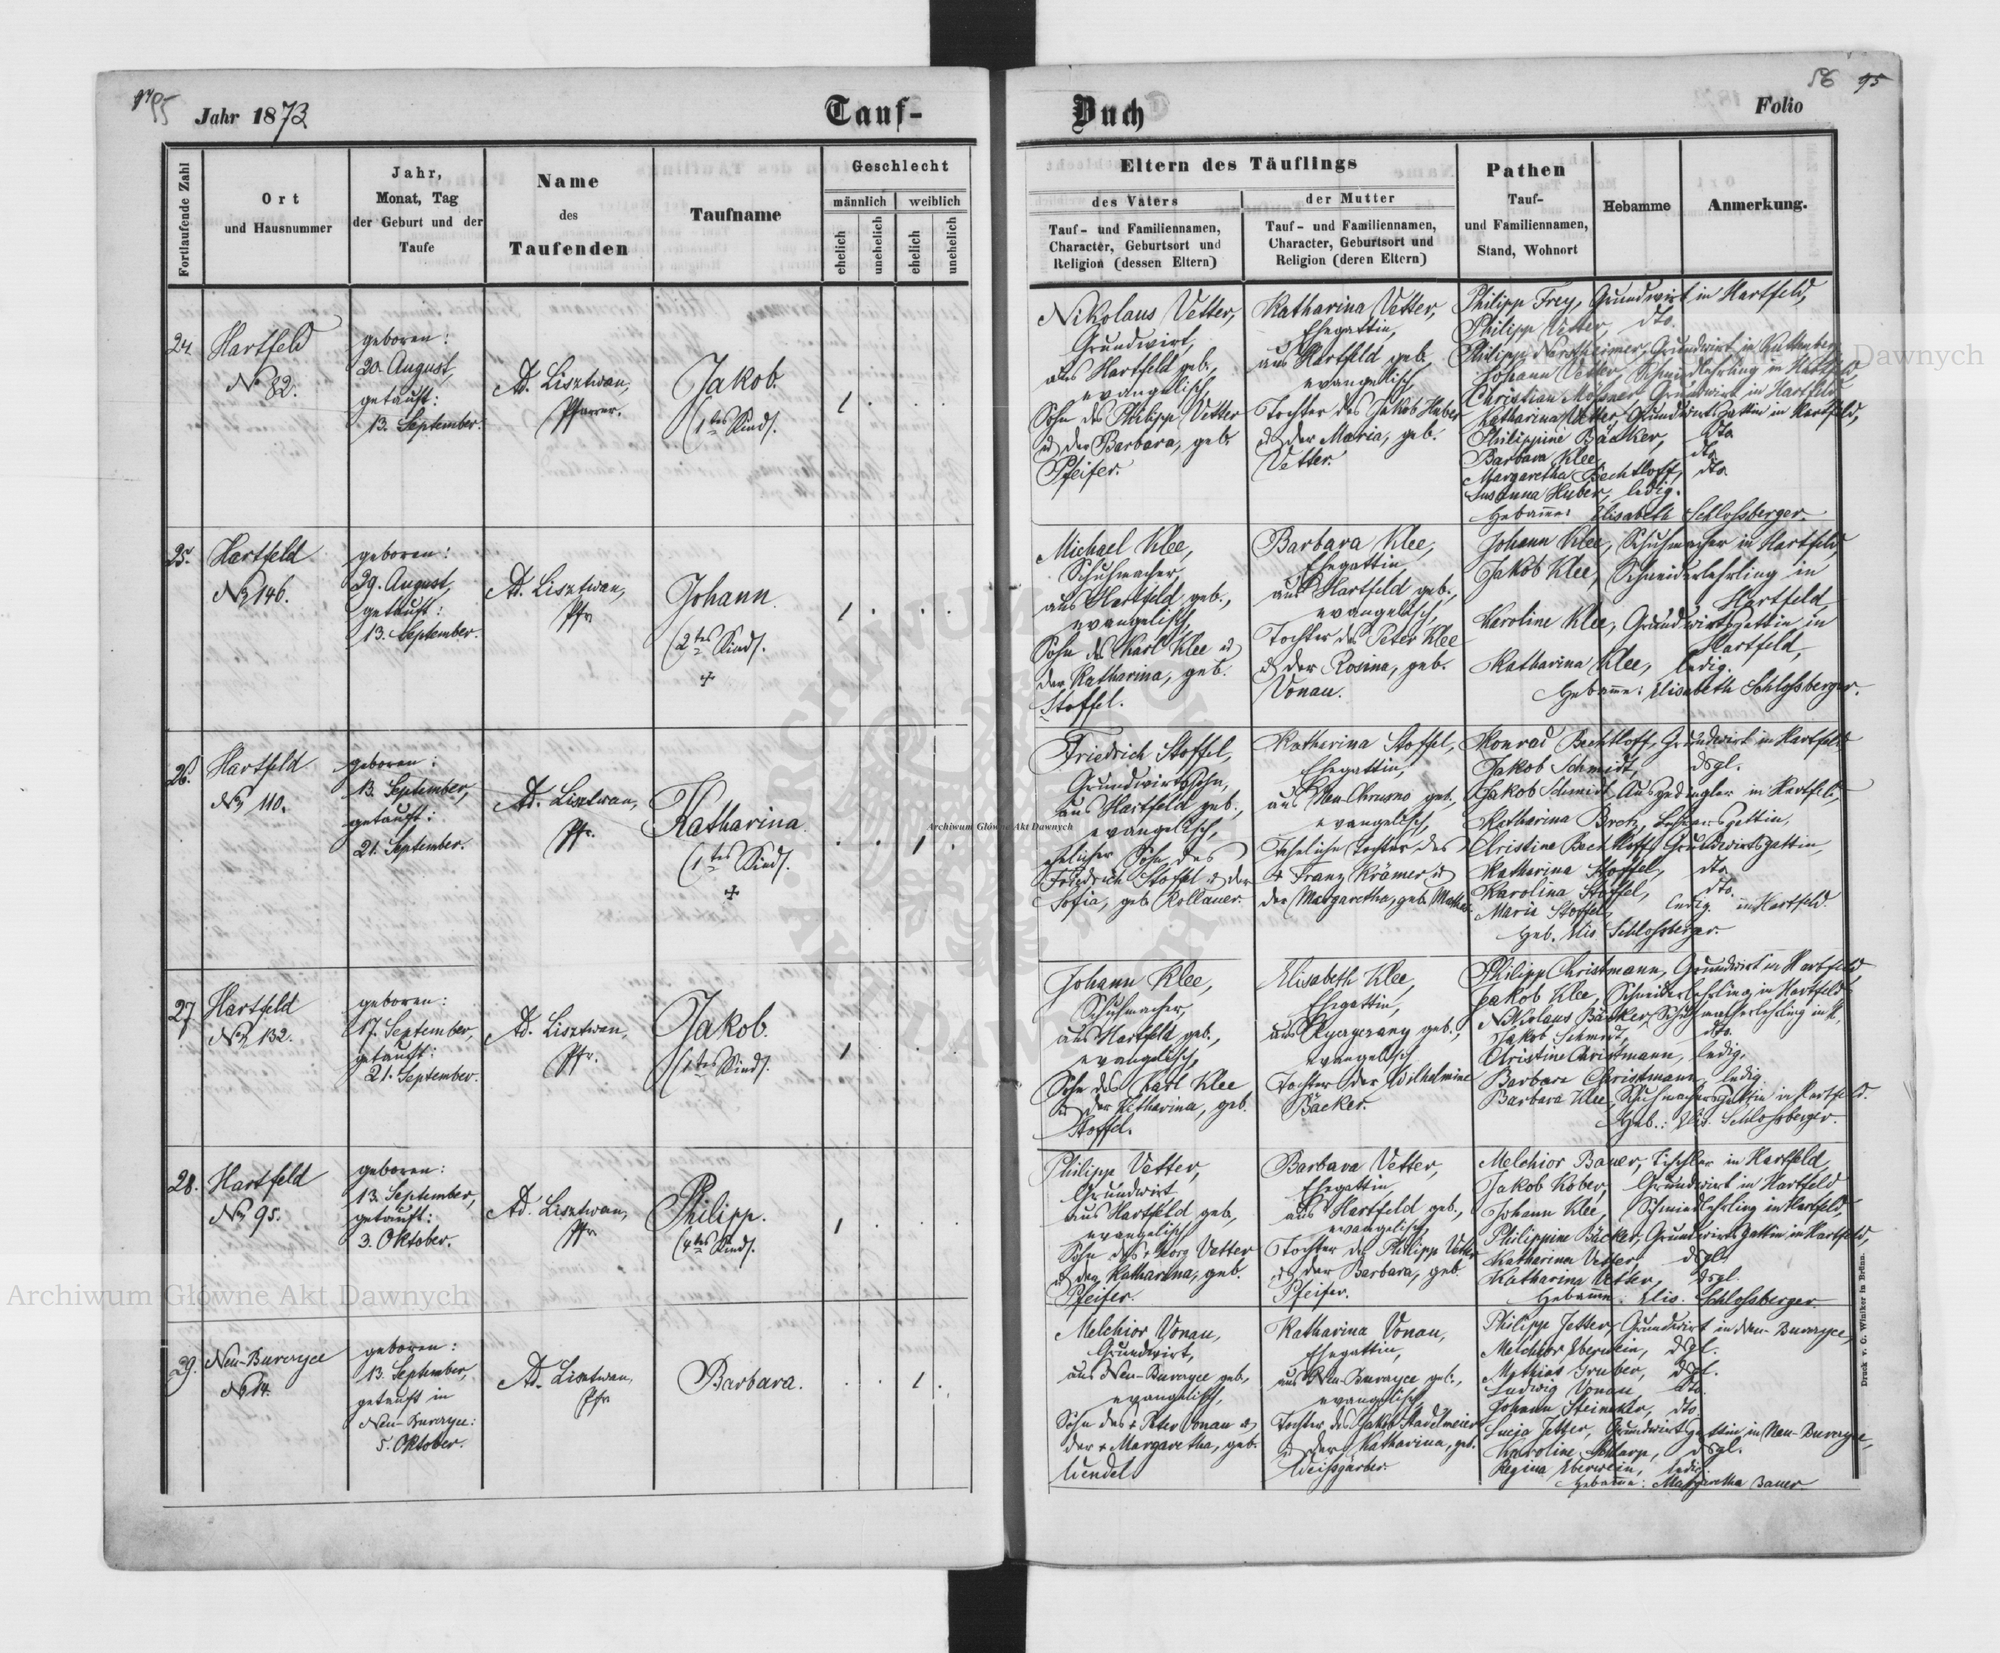 Jahr 1873
Tauf-
Buch
Folio
56
95
Fortlaufende Zahl
Ort
und Hausnummer
Jahr,
Monat, Tag
der Geburt und der
Taufe
Name
des
Taufenden
Taufname
Geschlecht
männlich
weiblich
ehelich
unehelich
ehelich
unehelich
Eltern des Täuflings
des Vaters
Tauf- und Familiennamen,
Character, Geburtsort und
Religion (dessen Eltern)
der Mutter
Tauf- und Familiennamen,
Character, Geburtsort und
Religion (deren Eltern)
Pathen
Tauf-
und Familiennamen,
Stand, Wohnort
Hebamme
Anmerkung.
24.
Hartfeld
No 82.
geboren:
20. August,
getauft:
13. September.
Ad. Lisztwan,
Pfarrer.
Jakob.
(1tes Kind).
1
Nikolaus Vetter,
Grundwirt,
aus Hartfeld geb.,
evangelisch,
Sohn des Philipp Vetter
u der Barbara, geb.
Pfeifer.
Katharina Vetter,
Ehegattin,
aus Hartfeld geb.,
evangelisch,
Tochter des Jakob Huber
u der Maria, geb.
Vetter.
Philipp Frey, Grundwirt in Hartfeld,
Philipp Vetter, dto.
Philipp Grundwirt in
Johann Vetter, Schmiedlehrling in Hartfeld,
Christian Grundwirt in Hartfeld,
Katharina Vetter, Grundwirtsgattin in Hartfeld,
Philippine Bäcker, dto
Barbara Klee, dto
Margaretha Bechtloff, dto.
Susanna Huber, ledig.
Hebamme: Elisabeth Schlossberger.
25.
Hartfeld
No 146.
geboren:
29. August,
getauft:
13. September.
Ad. Lisztwan,
Pfr
Johann.
(2tes Kind).
1
Michael Klee,
Schuhmacher,
aus Hartfeld geb.,
evangelisch,
Sohn des Karl Klee u
der Katharina, geb.
Stoffel.
Barbara Klee,
Ehegattin,
aus Hartfeld geb.,
evangelisch,
Tochter des Peter Klee
u der Rosina, geb.
Vonau.
Johann Klee, Schuhmacher in Hartfeld,
Jakob Klee, Schneiderlehrling in
Hartfeld,
Karoline Klee, Grundwirtsgattin in
Hartfeld,
Katharina Klee, ledig.
Hebamme: Elisabeth Schlossberger.
26.
Hartfeld
No 110.
geboren:
13. September,
getauft:
21. September.
Ad. Lisztwan,
Pfr.
Katharina.
(1tes Kind).
1
Friedrich Stoffel,
Grundwirtssohn,
aus Hartfeld geb.,
evangelisch,
ehelicher Sohn des
Friedrich Stoffel u der
Sofia, geb. Kollauer.
Katharina Stoffel,
Ehegattin,
aus geb.,
evangelisch,
Eheliche Tochter des
Franz Krämer u
der Margaretha, geb.
Konrad Bechtloff, Grundwirt in Hartfeld
Jakob Schmidt, dsgl.
Jakob Schmidt, Ausgedingler in Hartfeld,
Katharina
Christine Bechtloff, Grundwirtsgattin,
Katharina Stoffel, dto.
Karolina Stoffel, dto.
Maria Stoffel, ledig. in Hartfeld.
Heb. Elis Schlossberger.
27
Hartfeld
No 132.
geboren:
17. September,
getauft:
21. September.
Ad. Lisztwan,
Pfr.
Jakob.
(1tes Kind).
1
Johann Klee,
Schuhmacher,
aus Hartfeld geb.,
evangelisch,
Sohn des Karl Klee
u der Katharina, geb.
Stoffel.
Elisabeth Klee,
Ehegattin,
aus geb.,
evangelisch
Tochter der Wilhelmine
Bäcker.
Philipp Christmann, Grundwirt in Hartfeld,
Jakob Klee, Schneiderlehrling in Hartfeld
Nikolaus Bäcker, Schuhmacherlehrling in H.,
Jakob Schmidt, dto.
Christine Christmann, ledig,
Barbara Christmann, ledig
Barbara Klee, Schuhmachersgattin in Hartfeld.
Heb.: Elis. Schlossberger.
28.
Hartfeld
No 95.
geboren:
13. September,
getauft:
3. Oktober.
Ad. Lisztwan,
Pfr
Philipp.
(4tes Kind).
1
Philipp Vetter,
Grundwirt
aus Hartfeld geb.,
evangelisch
Sohn des Georg Vetter
u der Katharina, geb.
Pfeifer.
Barbara Vetter,
Ehegattin,
aus Hartfeld geb.,
evangelisch,
Tochter des Philipp Vetter
u der Barbara, geb.
Pfeifer.
Melchior Bauer, Tischler in Hartfeld,
Jakob Kober, Grundwirt in Hartfeld
Johann Klee, Schmiedlehrling in Hartfeld,
Philippine Bäcker, Grundwirtsgattin in Hartfeld,
Katharina Vetter, dsgl.
Katharina Vetter, dsgl.
Hebamme: Elis. Schlossberger
29.
Neu-Burczyce
No 14.
geboren:
13. September,
getauft in
Neu-Burczyce:
5. Oktober.
Ad. Lisztwan,
Pfr
Barbara.
1
Melchior Vonau,
Grundwirt,
aus Neu-Burczyce geb.,
evangelisch,
Sohn des + Peter Vonau u
der + Margaretha, geb.
Wendel
Katharina Vonau,
Ehegattin,
aus Neu-Burczyce geb.,
evangelisch,
Tochter des Jakob Stadelmeier
u der Katharina, geb.
Weißgärber.
Philipp Jetter, Grundwirt in Neu-Burczyce,
Melchior Eberwein, dsgl.
Mathias Gruber, dsgl.
Ludwig Vonau, dto.
Johann Steineker, dto
Lucia Jetter, Grundwirtsgattin in Neu-Burczyce,
Karoline dsgl.
Regina Eberwein, ledig
Hebamme: Margaretha Bauer
Druck v. G. Winiker in Brünn.
Archiwum Główne Akt Dawnych
Archiwum Główne Akt Dawnych